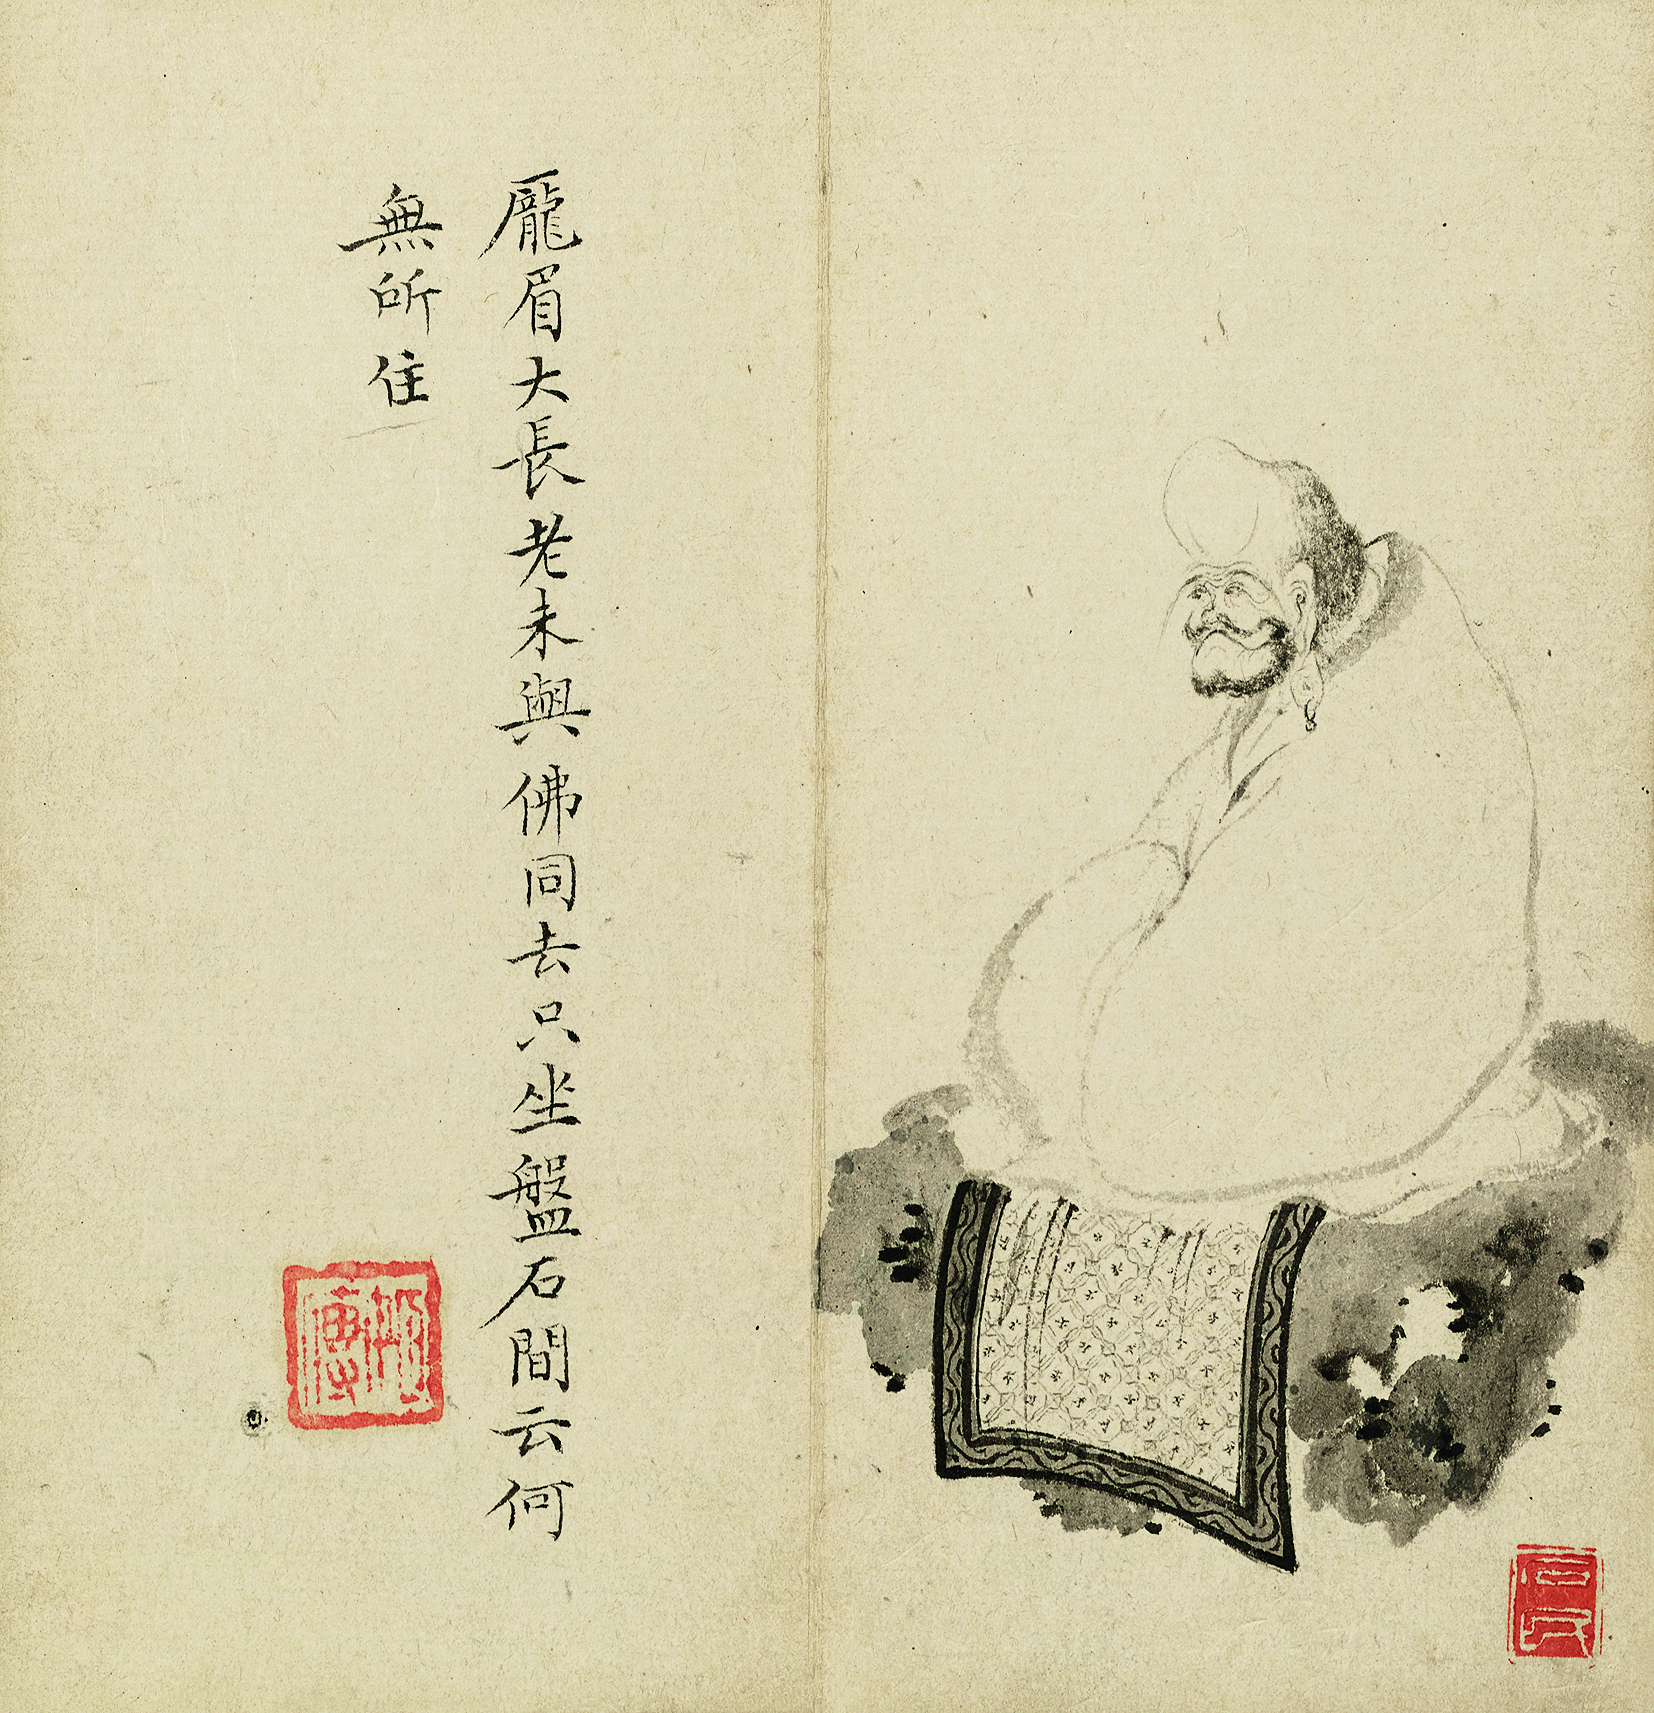 龎眉大長老未與佛同去只坐盤石間云何
無所住